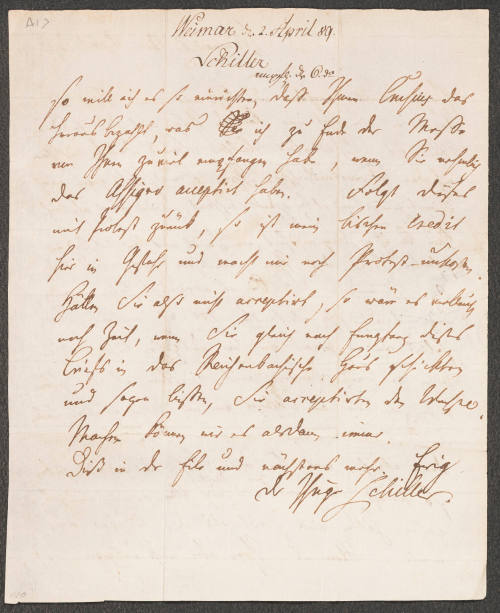 Weimar d. 2. April 89.
Schiller
empf. d. 6. do
so will ich es so einrichten, daß Ihnen Crusius das
heraus bezahlt, was ich zu Ende der Messe
von Ihnen zuviel empfangen habe, wenn Sie nehmlich
das Assigno acceptirt haben. Folgt dieses
mit Protest zurück, so ist mein bischen Credit
hier in Gefahr und macht mir noch Protest-unkosten.
Hätten Sie also nicht acceptirt, so wär es vielleicht
noch Zeit, wenn Sie gleich nach Empfang dieses
Briefs in das Reichenbachische Haus schickten
und sagen ließen, Sie acceptirten den Wechsel.
Machen können wir es alsdann immer.
Dieß in der Eile und nächstens mehr. Ewig
der Ihrige Schiller.